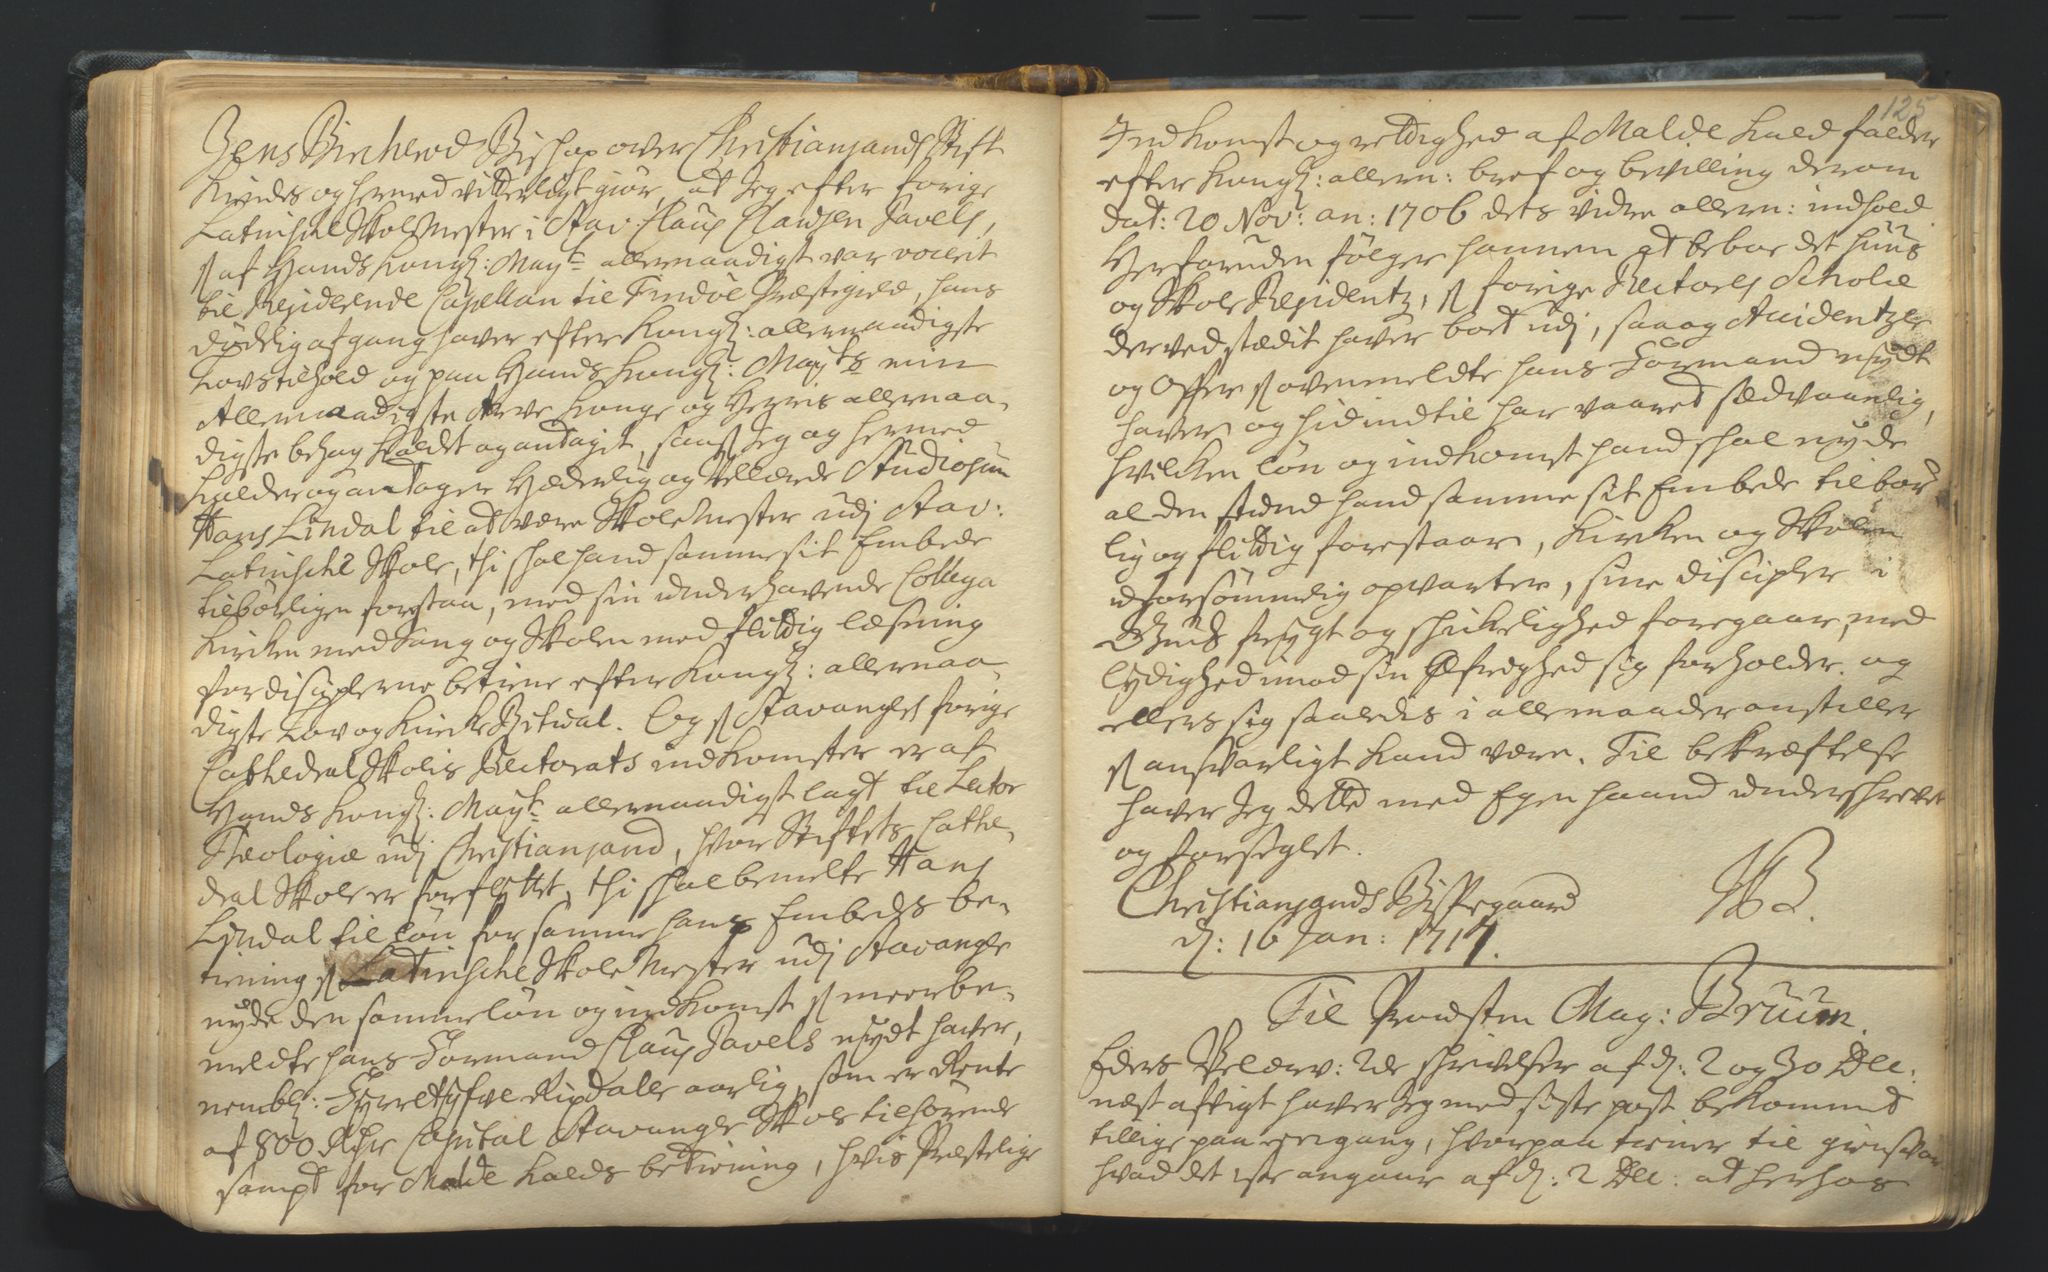 Jens Bircherod Bishop over Christiansands Stift
Kiendes og hermed vitterligt giør, at Jeg efter forige
Latinsche Skolemester i Stav. Claus Clausen Pavels,
som af Hands Kongl: Mayts allernaadigst var voceret
til Residerende Capellan til Findöe Præstegield, hans
dödelig afgang haver efter Kongl: allernaadigste
Lovs tilhold og paa Hands Kongl: Mayts min
Allernaadigste Arve Konge og Herris allernaa-
digste behag kaldet og antaget, saasom Jeg og hermed
kalder og antager Hæderlig og Vellærde Studiosum
Hans Lindal til at være Skolemester udj Stav:
Latinsche Skole, thi skal hand samme sit Embede
tilbörligen forestaa, med sin underhavende Collega
Kirken med Sang og Skolen med flittig læsning
for disciplerne betiene efter Kongl: allernaa-
digste Lov og Kirke Ritual. Og som Stavangers forige
Cathedral Skolis Rectorats indkomster er af
Hands Kongl: Mayt allernaadigst lagt til Lector
Theologiæ udj Christiansand, hvor Stiftets Cathe-
dral Skole er forflyttet, thi skal bemelte Hans
Lindal til lön for samme hans Embeds be-
tiening som Latinsche Skole Mester udj Stavanger
nyde den samme lön og indkomst som meerbe-
meldte hans Formand Claus Pavels nydt haver,
nembl: Fyrretyfve Rixdaller aarlig, som er Rente
af 800 Rdr Capital Stavanger Skole tilhörende
sampt for Malde Kalds betiening, hvis Præstelige
125
Indkomst og rettighed af Malde Kald falder
efter Kongl: allern: bref og bevilling derom
dat: 20 Nov: an: 1706 dets videre allern: indhold
Herforuden fölger hannem at beboe det huus
og Skole Residentz, som forige Rectores Scholæ
der ved stædet haver boet udj, saa og Accidentzer
og Offer som ovenmeldte hans Formand nydt
haver og hid indtil har været sædvaanlig,
hvilken lön og indkomst hand skal nyde
al den stund hand samme sit Embede tilbör
lig og flittig forestaar, Kirken og Skolen
uforsömmelig opvarter, sine discipler i
Guds frygt og skikkelighed foregaar, med
lydighed imod sin Öfrighed sig forholder, og
ellers sig saaledes i alle maader anstiller
som ansvarligt kand være. Til bekræftelse
haver Jeg dette med Egen haand underskrevet
og forseglet.
Christiansands Bispegaard
d: 16 Jan: 1717.
JB.
Til Provsten Mag: Bruun.
Eders Velærv: 2de skrivelser af d: 2 og 30 Dec:
næst afvigt haver Jeg med siste post bekommet
tillige paa een gang, hvorpaa tiener til giensvar
hvad det 1ste angaar af d: 2 Dec: at herhos